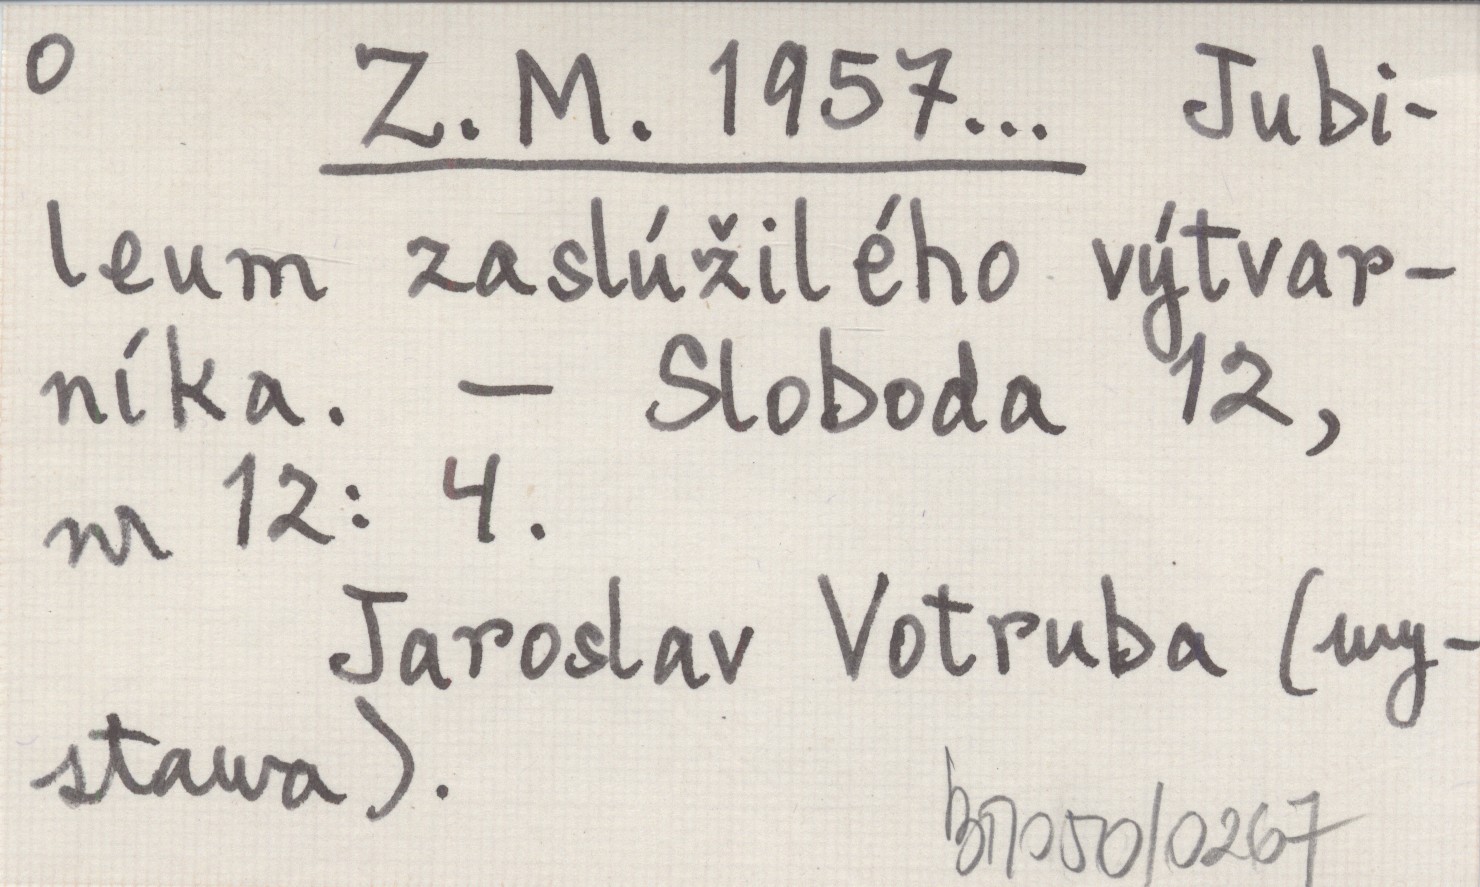 O Z. M. 1957... Jubi-
leum zaslúžilého výtvar-
níka. — Sloboda 12,
nr 12: 4.
Jaroslav Votruba (wy-
stawa).